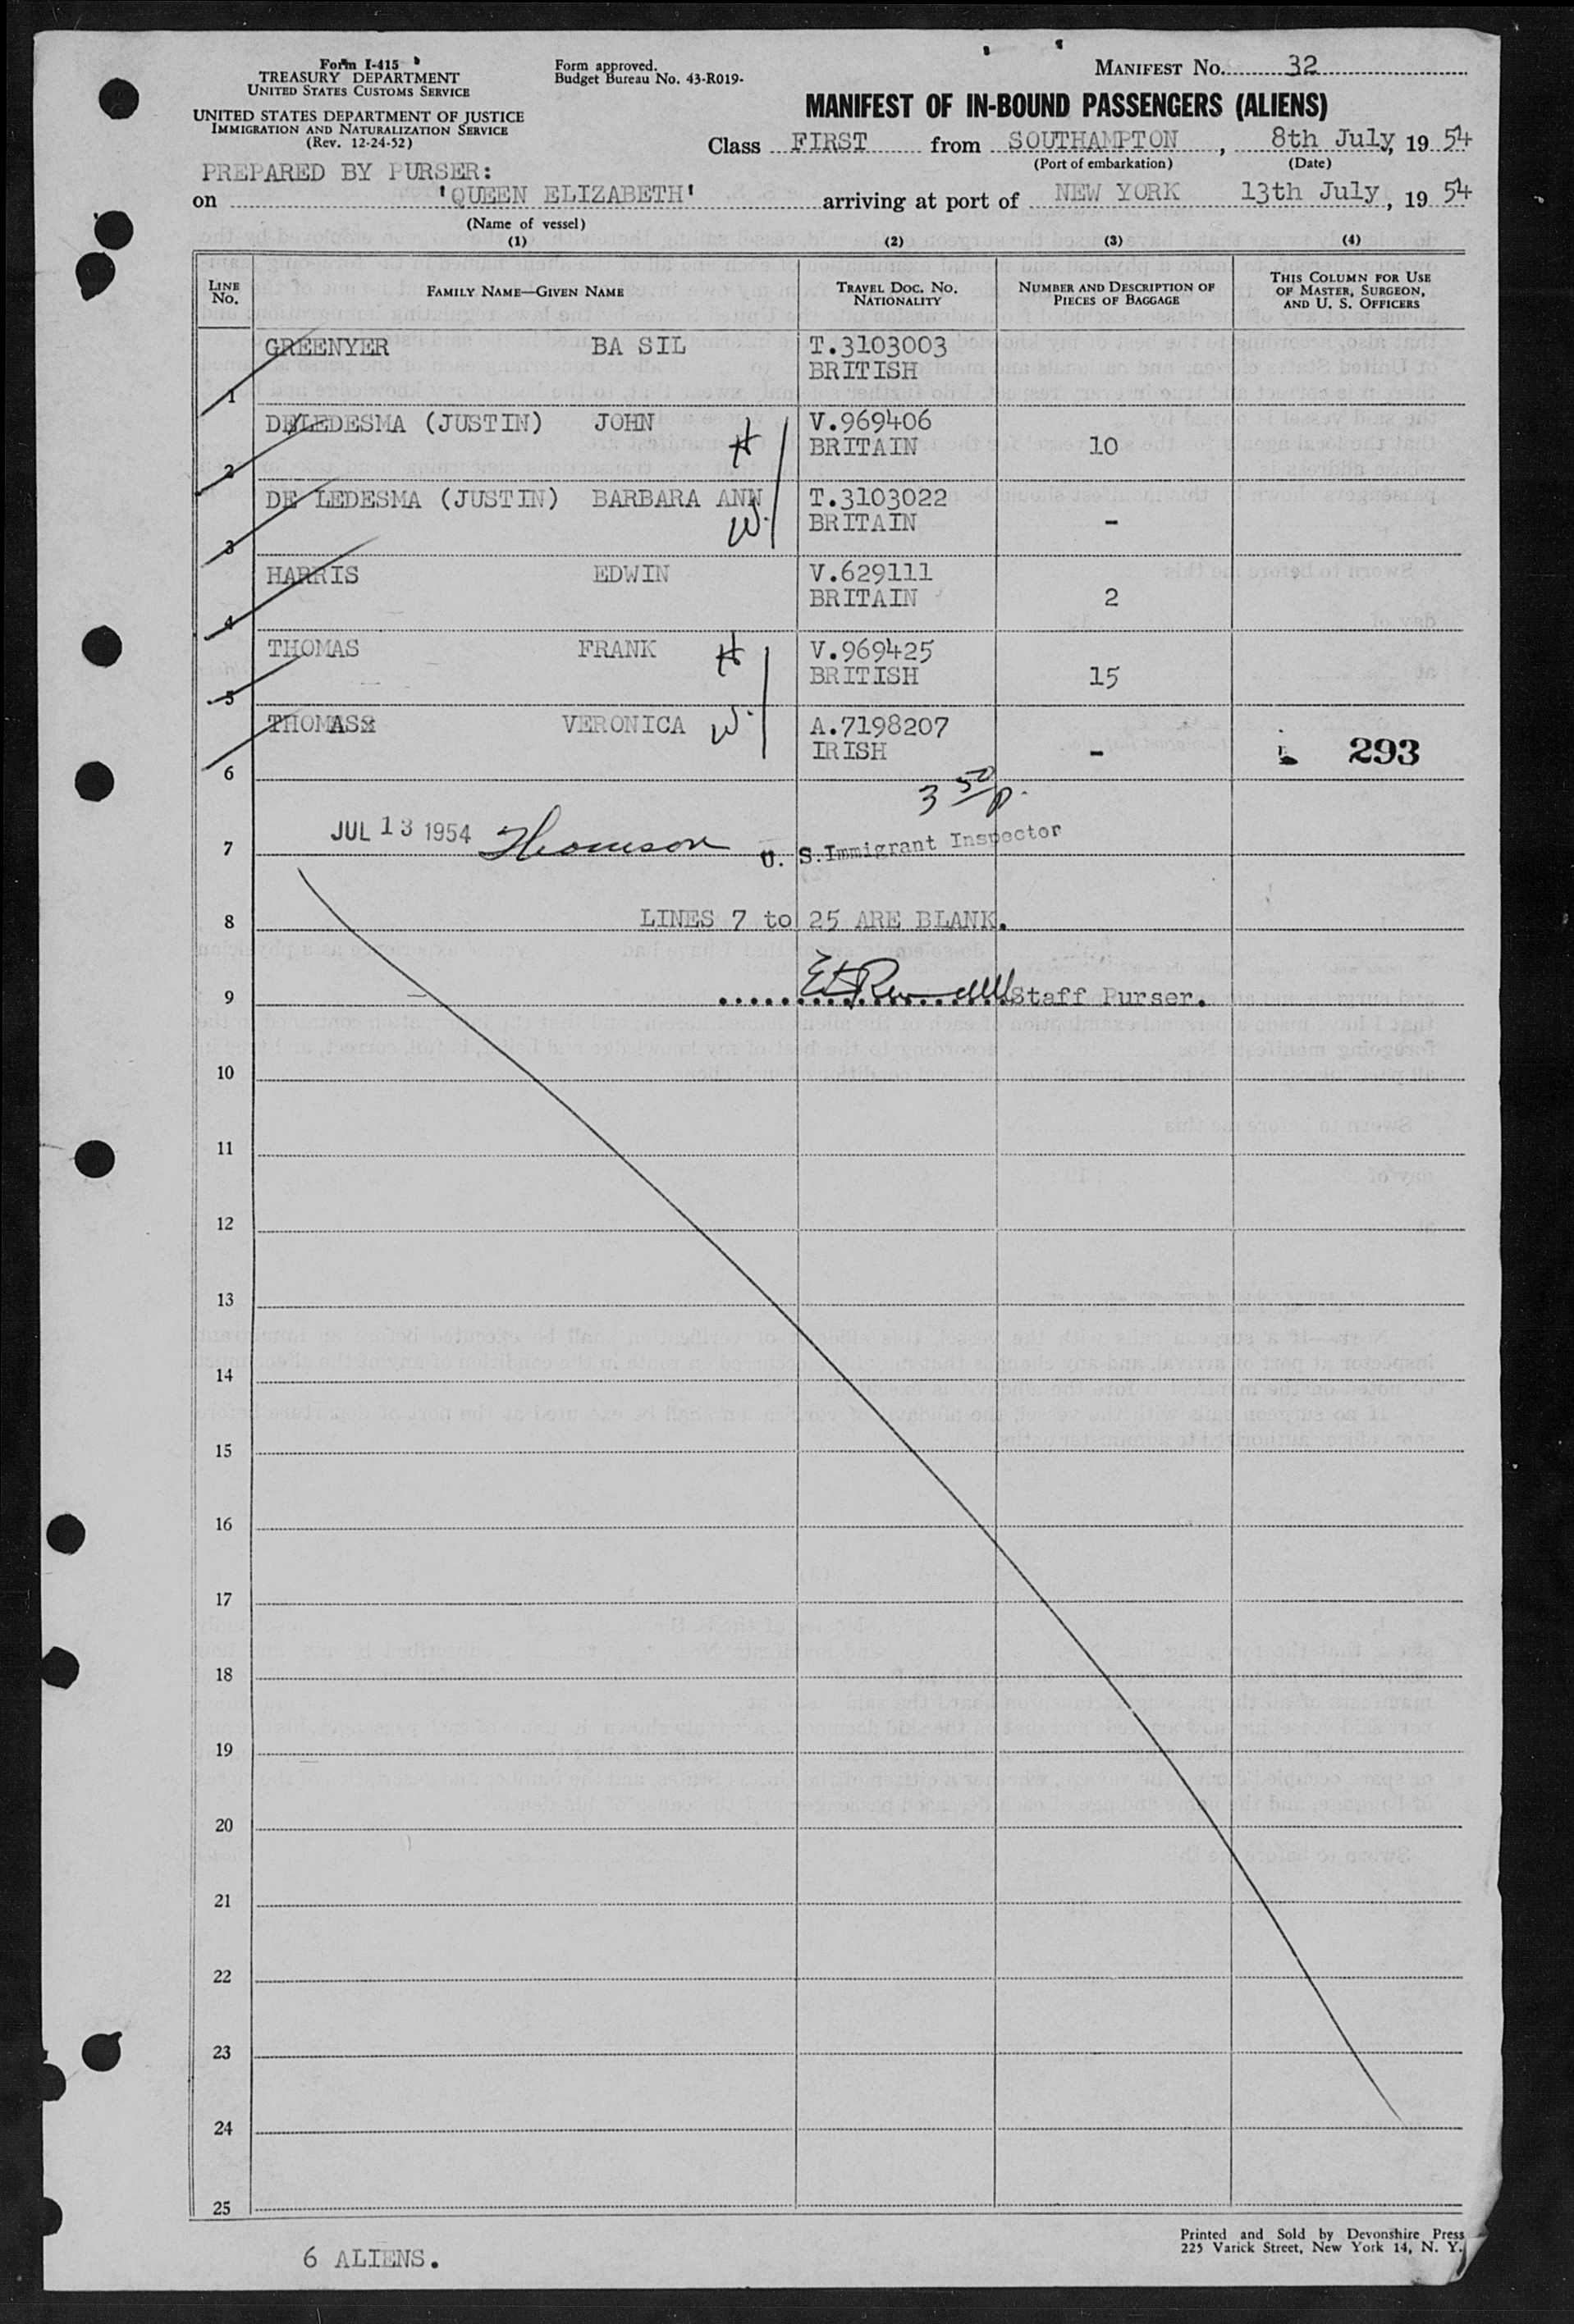 Form I-415
TREASURY DEPARTMENT
UNITED STATES CUSTOMS SERVICE
UNITED STATES DEPARTMENT OF JUSTICE
IMMIGRATION AND NATURALIZATION SERVICE
(Rev. 12-24-52)
Form approved.
Budget Bureau No. 43-R019-
MANIFEST No. 32
MANIFEST OF IN-BOUND PASSENGERS (ALIENS)
Class FIRST from SOUTHAMPTON, 8th July, 19 54
(Port of embarkation) (Date)
PREPARED BY PURSER:
on 'QUEEN ELIZABETH' arriving at port of NEW YORK 13th July, 19 54
(Name of vessel)
(1) (2) (3) (4)
LINE No. FAMILY NAME—GIVEN NAME TRAVEL DOC. No. NATIONALITY NUMBER AND DESCRIPTION OF PIECES OF BAGGAGE THIS COLUMN FOR USE OF MASTER, SURGEON, AND U. S. OFFICERS
GREENYER BA SIL T.3103003
1 BRITISH
DE LEDESMA (JUSTIN) JOHN H V.969406
2 BRITAIN 10
DE LEDESMA (JUSTIN) BARBARA ANN W. T.3103022
3 BRITAIN -
HARRIS EDWIN V.629111
4 BRITAIN 2
THOMAS FRANK H V.969425
5 BRITISH 15
THOMAS VERONICA W. A.7198207
6 IRISH - 293
3 50 p.
7 JUL 13 1954 Thomson U. S. Immigrant Inspector
8 LINES 7 to 25 ARE BLANK.
9 Staff Purser.
10
11
12
13
14
15
16
17
18
19
20
21
22
23
24
25
Printed and Sold by Devonshire Press
225 Varick Street, New York 14, N. Y.
6 ALIENS.